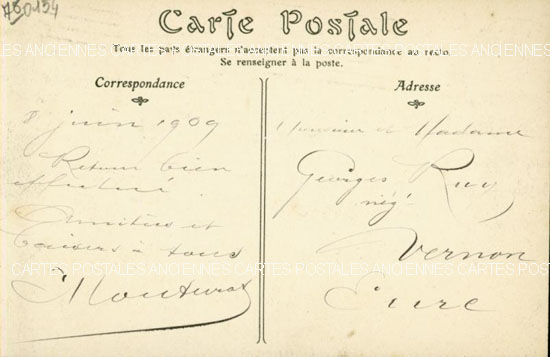 760134
Carte Postale
Tous les pays étrangers n'acceptent pas la correspondance au recto.
Se renseigner à la poste.
CARTES POSTALES ANCIENNES CARTES POSTALES ANCIENNES
Correspondance
8 juin 1909
Retour bien
effectué
Amitiés et
baisers à tous
Adresse
Monsieur et Madame
Georges
nég
Vernon
Eure
CARTES POSTALES ANCIENNES CARTES POSTALES ANCIENNES